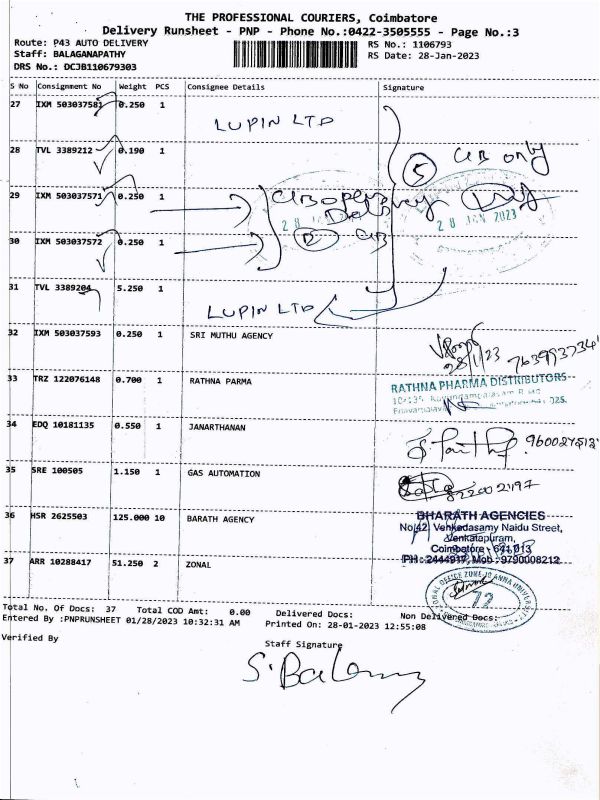 THE PROFESSIONAL COURIERS, Coimbatore
Delivery Runsheet - PNP - Phone No.:0422-3505555 - Page No.:3
Route: P43 AUTO DELIVERY RS No.: 1106793
Staff: BALAGANAPATHY RS Date: 28-Jan-2023
DRS No.: DCJB110679303
S No Consignment No Weight PCS Consignee Details Signature
27 IXM 503037581 0.250 1 LUPIN LTD
28 TVL 3389212 0.190 1
5 only
29 IXM 503037571 0.250 1
28 JAN 2023 28 JAN 2023
30 IXM 503037572 0.250 1
31 TVL 3389204 5.250 1 LUPIN LTD
32 IXM 503037593 0.250 1 SRI MUTHU AGENCY
28/1/23
33 TRZ 122076148 0.700 1 RATHNA PARMA
RATHNA PHARMA DISTRIBUTORS
34 EDQ 10181135 0.550 1 JANARTHANAN
35 SRE 100505 1.150 1 GAS AUTOMATION
36 HSR 2625503 125.000 10 BARATH AGENCY
BHARATH AGENCIES
No.42, Venkadasamy Naidu Street,
Venkatapuram,
Coimbatore - 641 013
PH : 2444917, Mob : 9790008212
37 ARR 10288417 51.250 2 ZONAL
72
Total No. Of Docs: 37 Total COD Amt: 0.00 Delivered Docs: Non Delivered Docs:
Entered By :PNPRUNSHEET 01/28/2023 10:32:31 AM Printed On: 28-01-2023 12:55:08
Verified By Staff Signature
S.Balan